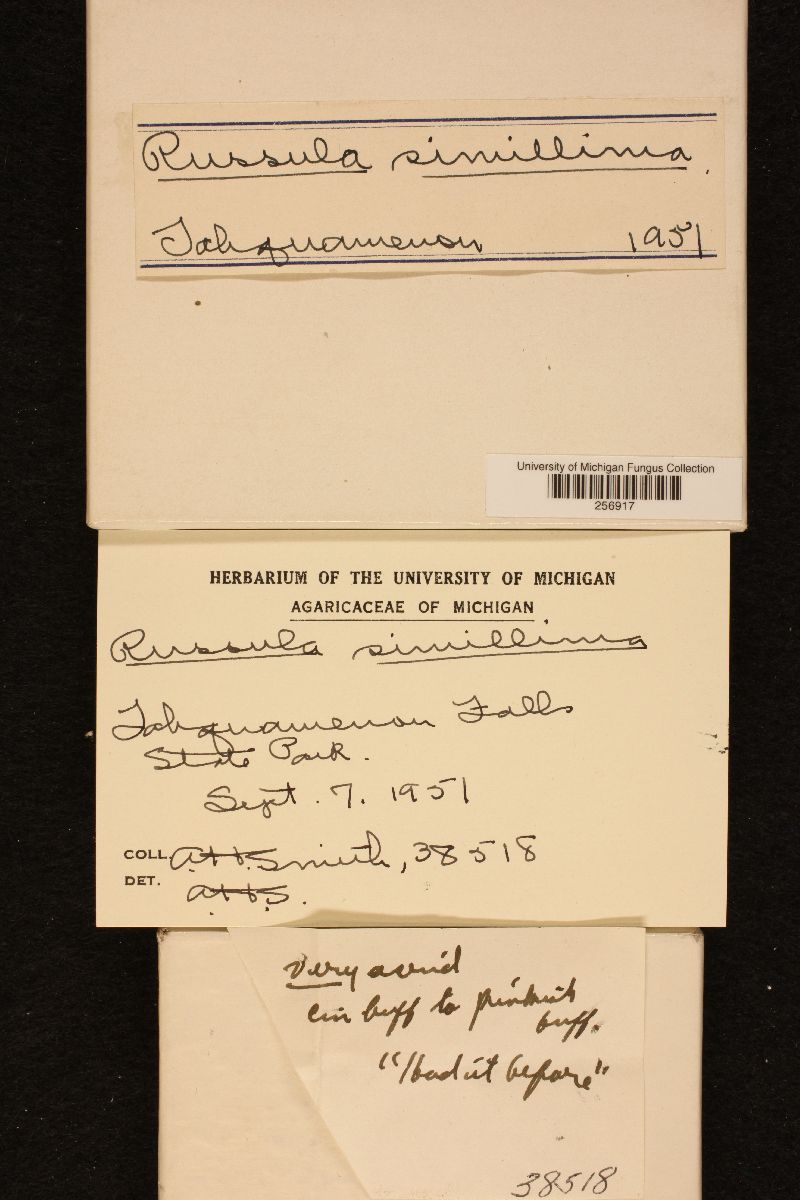 Russula simillima
Tahquamenon 1951
University of Michigan Fungus Collection
256917
HERBARIUM OF THE UNIVERSITY OF MICHIGAN
AGARICACEAE OF MICHIGAN
Russula simillima
Tahquamenon Falls
State Park.
Sept. 7. 1951
COLL. A.H.Smith, 38518
DET. A.H.S.
Very acrid
cin buff to pinkish
buff.
"had it before"
38518